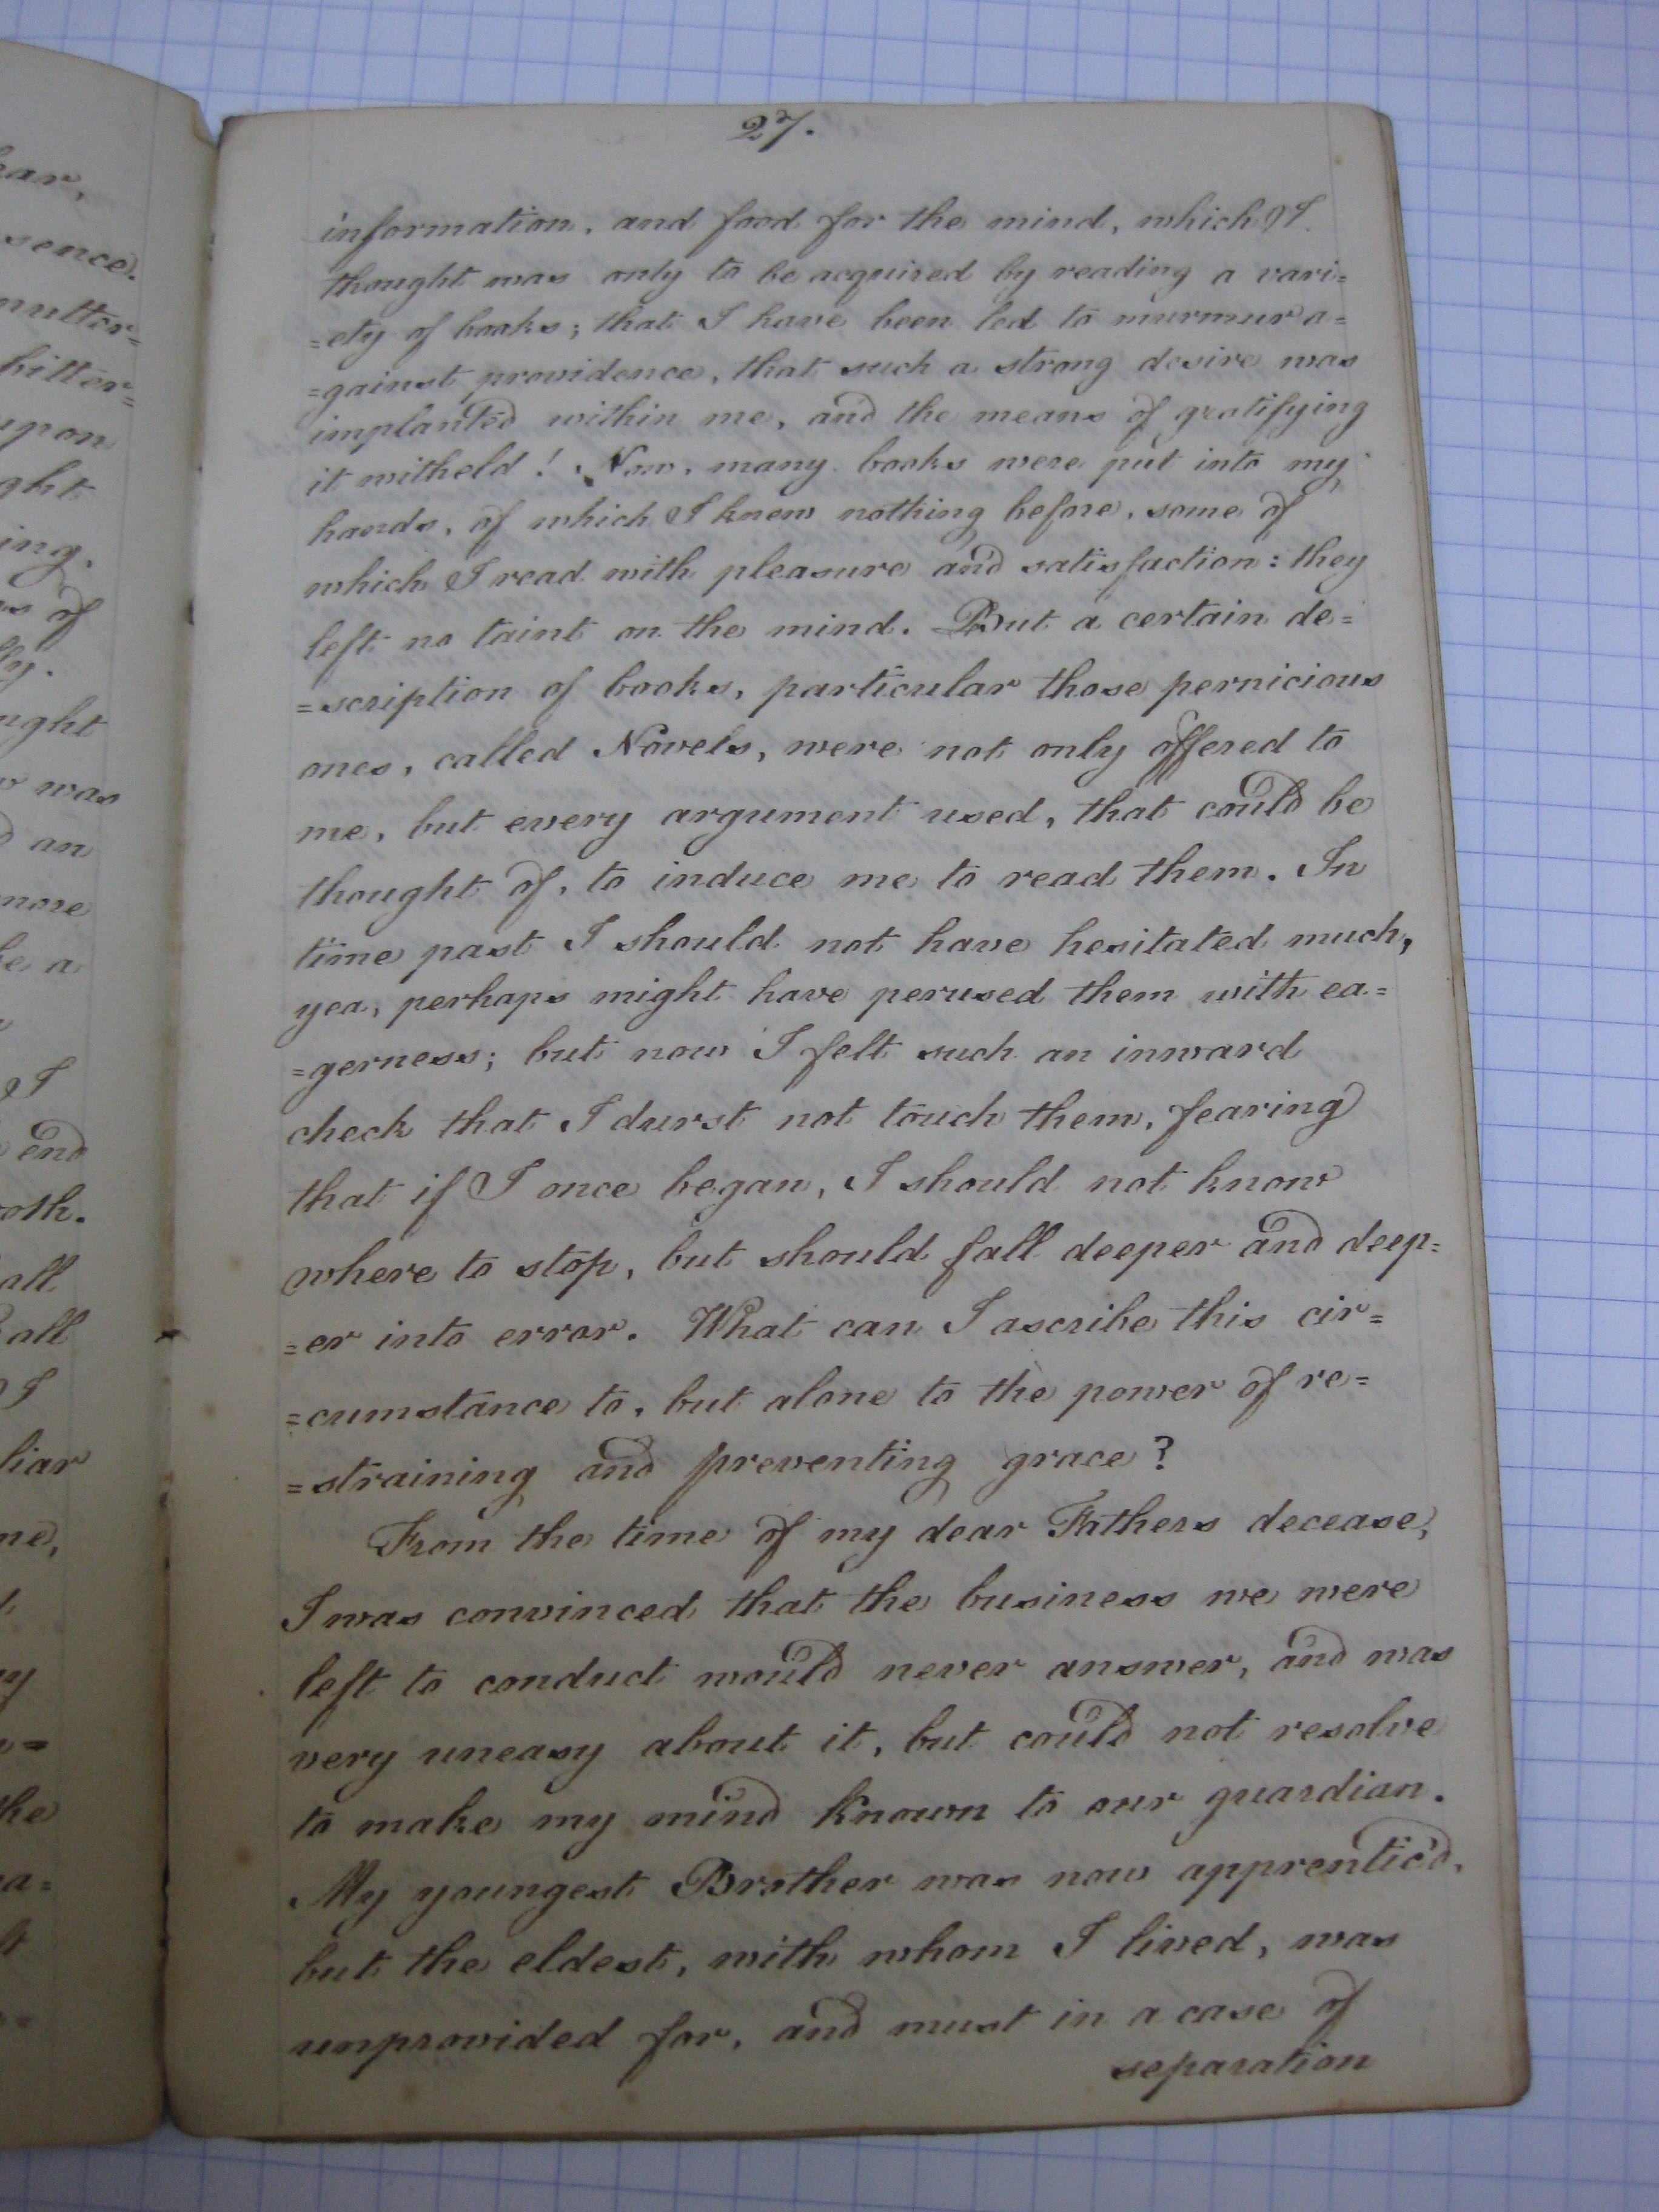 ear,
sence.
mutter=
bitter=
upon
ght
ing.
of
ught
was
an
more
be a
I
end
oth.
all
all
I
liar
me,
the
27.
information, and food for the mind, which I
thought was only to be acquired by reading a vari=
=ety of books; that I have been led to murmur a=
=gainst providence, that such a strong desire was
implanted within me, and the means of gratifying
it witheld! Now, many books were put into my
hands, of which I knew nothing before, some of
which I read with pleasure and satisfaction: they
left no taint on the mind. But a certain de=
=scription of books, particular those pernicious
ones, called Novels, were not only offered to
me, but every argument used, that could be
thought of, to induce me to read them. In
time past I should not have hesitated much,
yea, perhaps might have perused them with ea=
=gerness; but now I felt such an inward
check that I durst not touch them, fearing
that if I once began, I should not know
where to stop, but should fall deeper and deep=
=er into error. What can I ascribe this cir=
=cumstance to, but alone to the power of re=
=straining and preventing grace?
From the time of my dear Fathers decease,
I was convinced that the business we were
left to conduct would never answer, and was
very uneasy about it, but could not resolve
to make my mind known to our guardian.
My youngest Brother was now apprentic'd,
but the eldest, with whom I lived, was
unprovided for, and must in a case of
separation